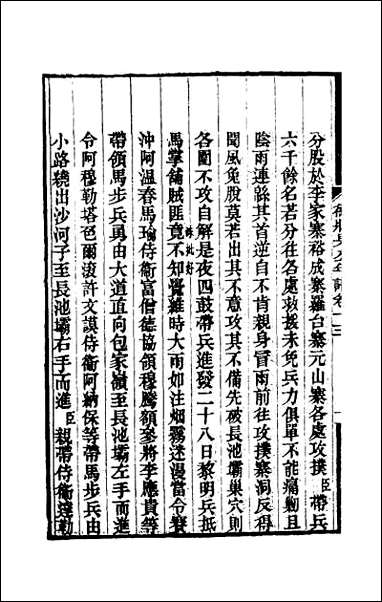 分股於李家寨裕成寨羅台寨元山寨各處攻撲臣帶兵
六千餘名若分往各處救援未免兵力俱單不能痛勦且
陰雨連緜其首逆自不肯親身冒雨前往攻撲寨洞反得
聞風兔脫莫若出其不意攻其不備先破長池壩巢穴則
各圍不攻自解是夜四鼓帶兵進發二十八日黎明兵抵
硃批好
馬掌舖賊匪竟不知覺維時大雨如注烟霧迷漫當令賽
沖阿溫春馬瑜侍衛富僧德協領穆騰額參將李應貴等
帶領馬步兵勇由大道直向包家嶺至長池壩左手而進
令阿穆勒塔色爾滾許文謨侍衛阿納保等帶馬步兵由
小路繞出沙河子至長池壩右手而進臣親帶侍衛達勒